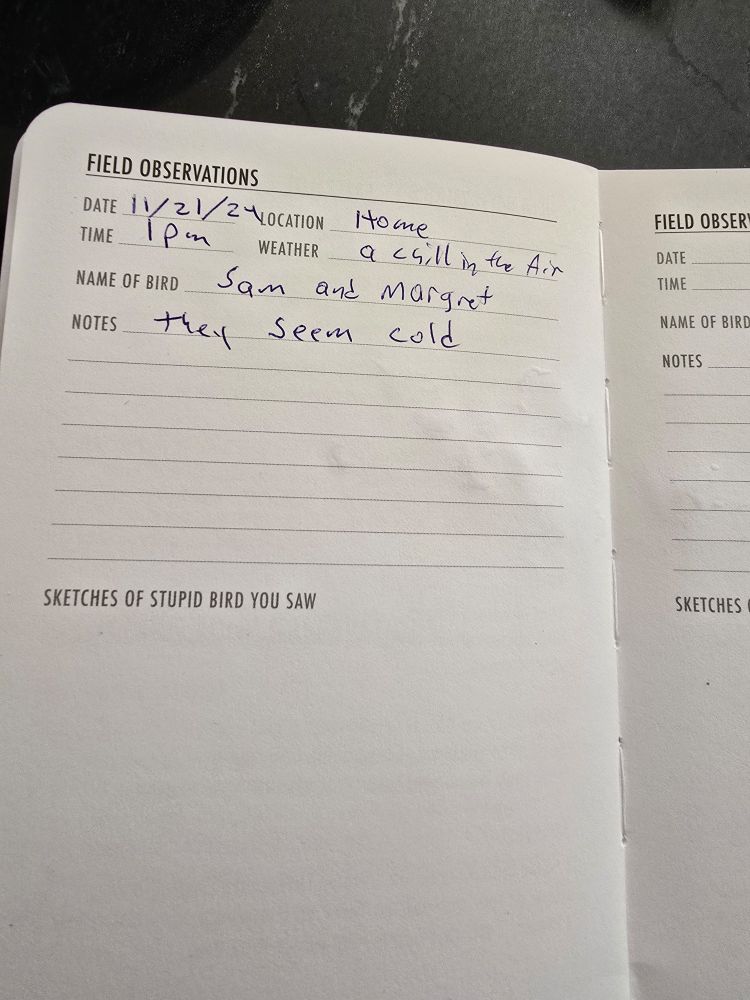 FIELD OBSERVATIONS
DATE 11/21/24 LOCATION Home
TIME 1pm WEATHER a chill in the Air
NAME OF BIRD Sam and Margret
NOTES they seem cold
SKETCHES OF STUPID BIRD YOU SAW
FIELD OBSERV
DATE
TIME
NAME OF BIRD
NOTES
SKETCHES